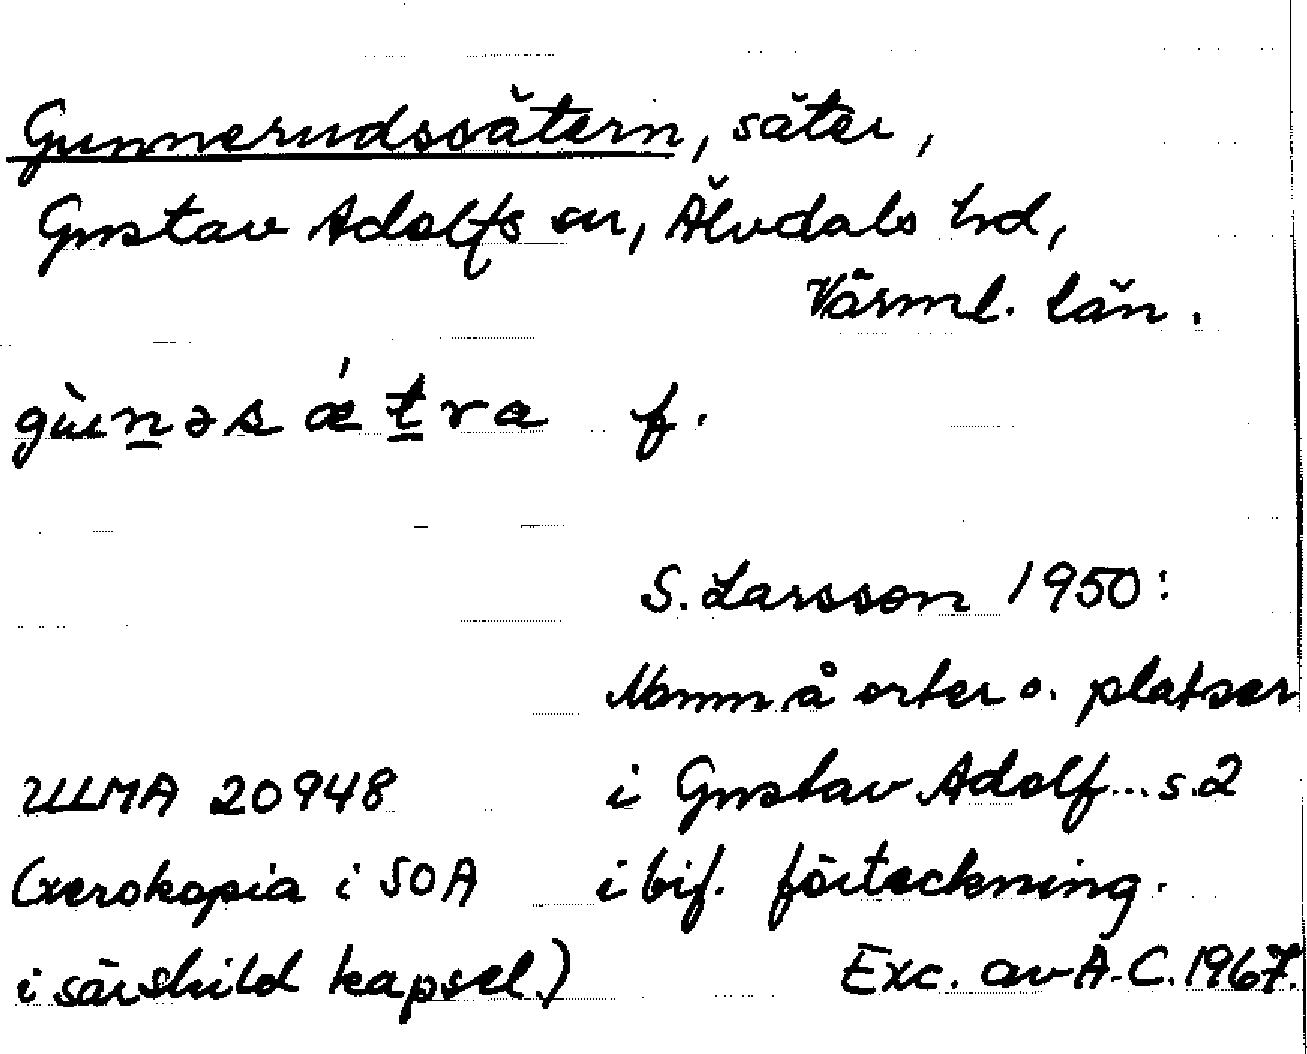 Gunnerudssätern, säter,
Gustav Adolfs sn, Älvdals hd,
Värml. län.
gùn̲əsǽt̲ra f.
S. Larsson 1950:
Namn å orter o. platser
ULMA 20948 i Gustav Adolf... s.2
(xerokopia i SOA i bif. förteckning.
i särskild kapsel.) Exc. av A.C. 1967.